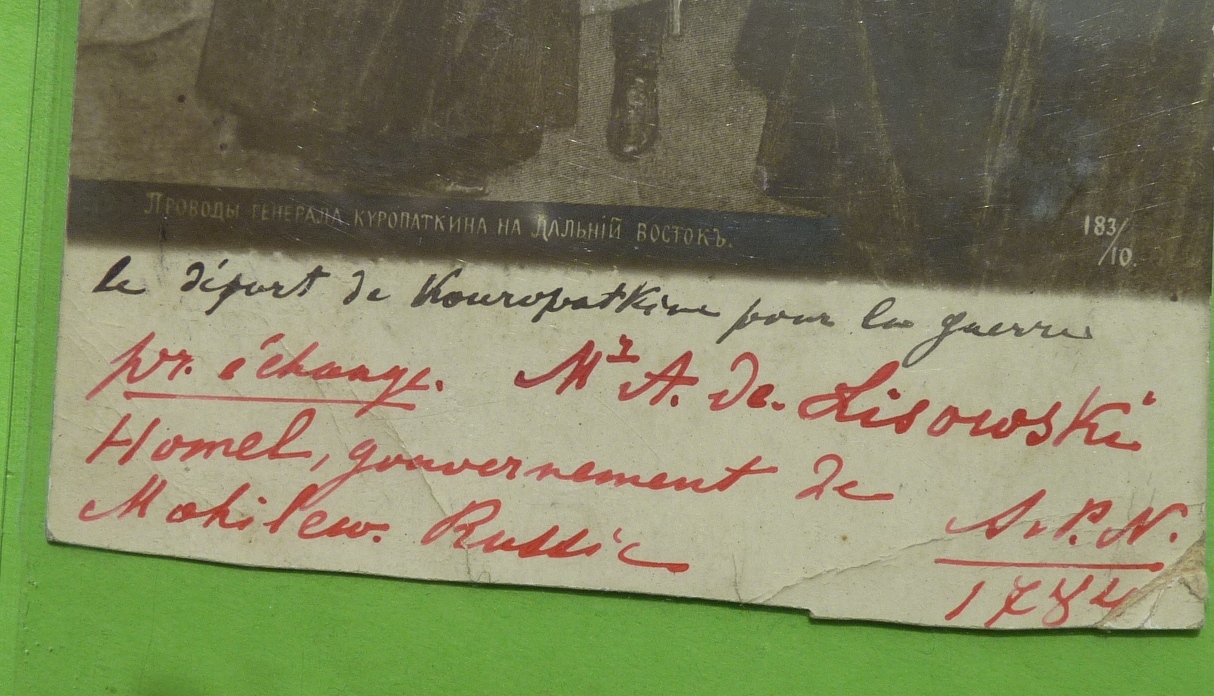 Проводы генерала Куропаткина на Дальній Востокъ.
183/10.
le départ de Kouropatkine pour la guerre
pr. échange. Mr A. de Lisowski
Homel, gouvernement de
Mohilew. Russie
A. P. N.
1784